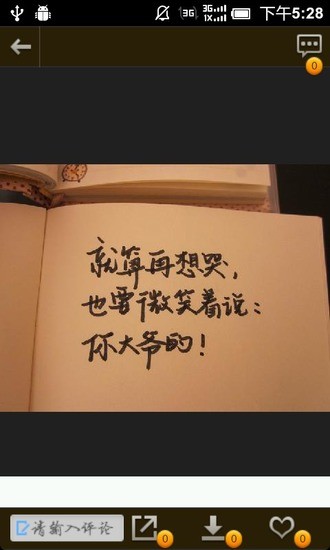 3G
3G
1X
下午5:28
0
就算再想哭,
也要微笑着说:
你大爷的!
请输入评论
0
0
0